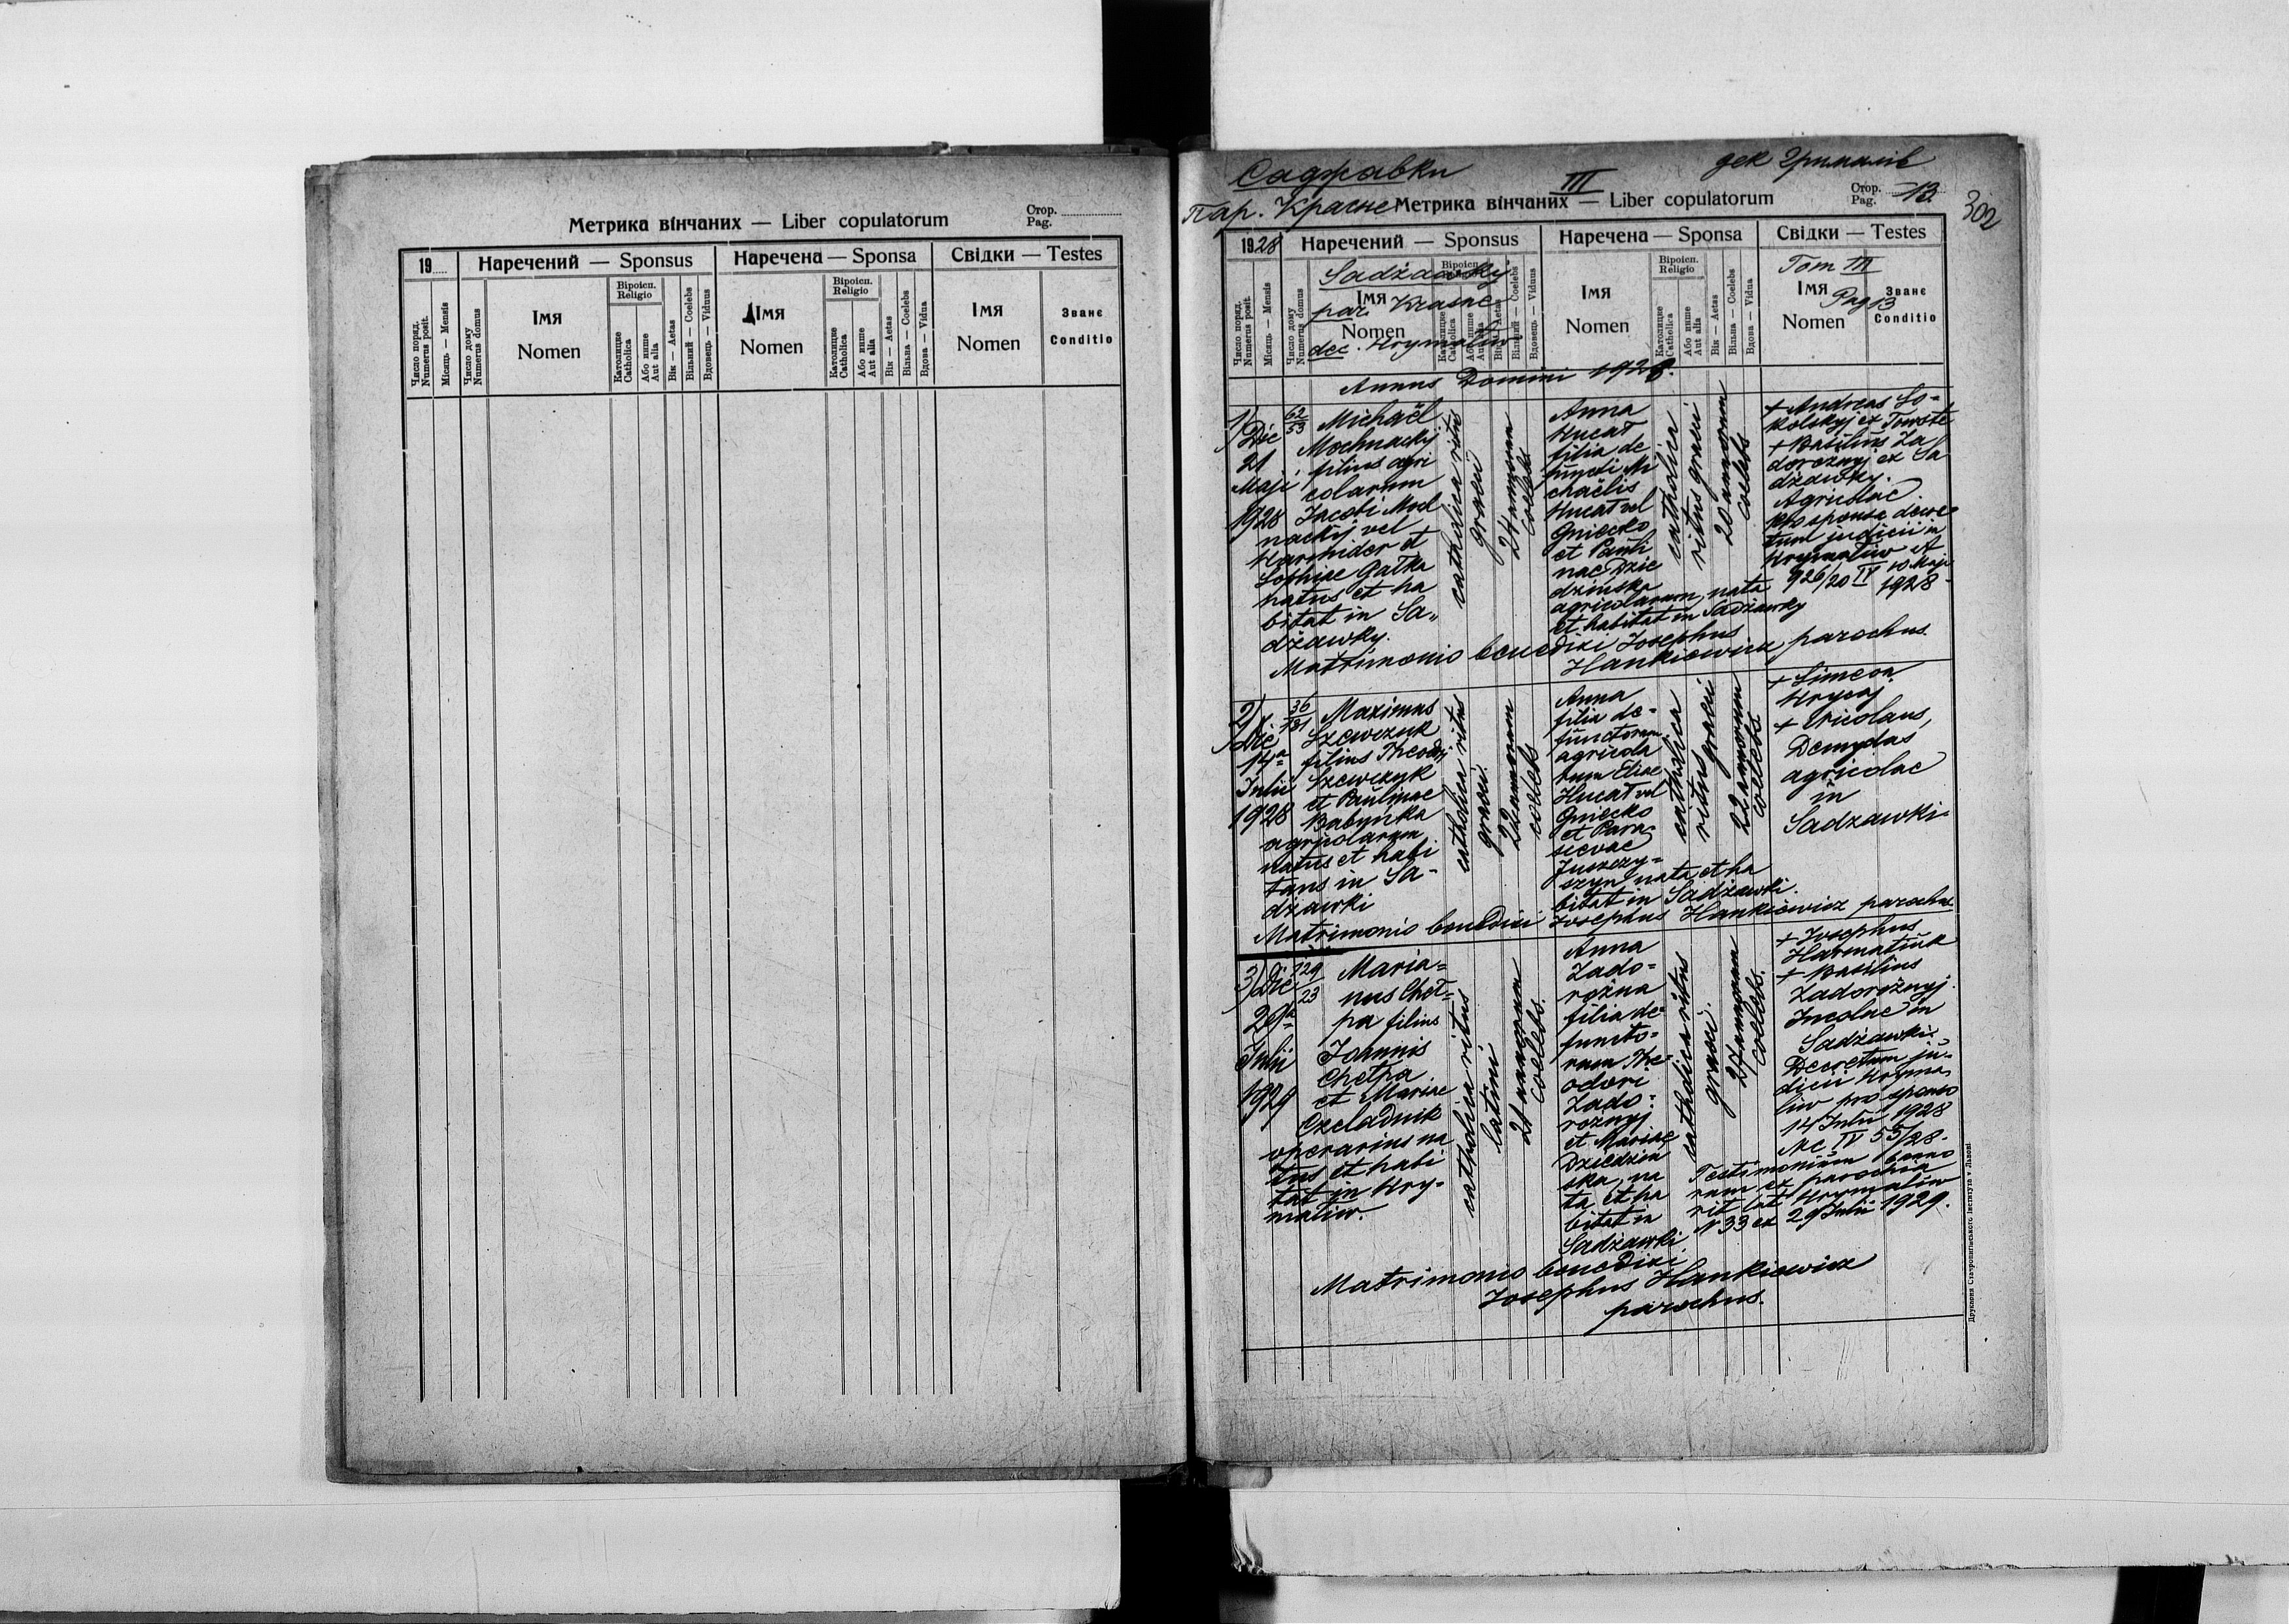 Метрика вінчаних — Liber copulatorum
Стор.
Pag.
19
Наречений — Sponsus
Наречена — Sponsa
Свідки — Testes
Число поряд.
Numerus posit.
Місяць — Mensis
Число дому
Numerus domus
Імя
Nomen
Віроісп.
Religio
Католицке
Catholica
Або инше
Aut alia
Вік — Aetas
Вільний — Coelebs
Вдовець — Viduus
Імя
Nomen
Віроісп.
Religio
Католицке
Catholica
Або инше
Aut alia
Вік — Aetas
Вільна — Coelebs
Вдова — Vidua
Імя
Nomen
Званє
Conditio
Саджавки
III
дек Грималів
Пар. Красне
Метрика вінчаних — Liber copulatorum
Стор.
Pag. 13
302
1928
Наречений — Sponsus
Наречена — Sponsa
Свідки — Testes
Число поряд.
Numerus posit.
Місяць — Mensis
Число дому
Numerus domus
Sadżawky
par. Krasne
dec. Hrymaliw
Імя
Nomen
Віроісп.
Religio
Католицке
Catholica
Або инше
Aut alia
Вік — Aetas
Вільний — Coelebs
Вдовець — Viduus
Імя
Nomen
Віроісп.
Religio
Католицке
Catholica
Або инше
Aut alia
Вік — Aetas
Вільна — Coelebs
Вдова — Vidua
Tom III
Pag 13
Імя
Nomen
Званє
Conditio
Annus Domini 1928.
1)
Die
21
Maji
1928
62
53
Michaël
Mochnackij
filius agri
colarum
Jacobi Moch
nackij vel
et
Sophiae Gałka
natus et ha
bitat in Sa„
dżawky.
catholica ritus
graeci
24 annorum
coelebs
Anna
Hucał
filia de
functi Mi
chaëlis
Hucał vel
Gniecko
et Pauli
nae Dzie
dzińska
agricolarum, nata
et habitat in Sadżawky
catholica
ritus graeci
20 annorum
coelebs
+ Andreas So-
kolskyj ex Touste
+ Basilius Za
dorożnyj ex Sa
dżawky.
Agricolae.
Pro sponsa decre-
tum judicii in
Hrymaliw A
926/20 IV 10 Maji
1928
Matrimonio benedixi Josephus
Hankiewicz parochus.
2)
Die
14a
Julii
1928
36
131
Maximus
Szewczuk
filius Theodori
Szewczyk
et Paulinae
Babyńka
agricolarum
natus et habi
tans in Sa-
dżawki
catholica ritus
graeci.
22 annorum
coelebs
Anna
filia de-
functorum
agricola
rum Eliae
Hucał vel
Gniecko
et Para-
scevae
Juszczy-
szyn nata et ha
bitat in Sadżawki.
catholica
ritus graeci
22 annorum
coelebs
+ Simeon
Hrycaj
+ Nicolaus
Demydas
agricolae
in
Sadżawki-
Matrimonio benedixi Josephus Hankiewicz parochus
3)
Die
29a
Julii
1929
129
23
Maria=
nus Cheł=
pa filius
Joannis
Chełpa
et Mariae
Czeladnik
operarius na
tus et habi
tat in Hry-
maliw.
catholica ritus
latini
21 annorum
coelebs.
Anna
Zado=
rożna
filia de-
functo-
rum The-
odori
Zado-
rożnyj
et Mariae
Dziedziń
ska, na
ta et ha
bitat in
Sadżawki
catholica ritus
graeci.
27 annorum
coelebs.
+ Josephus
Harmatiuk
+ Basilius
Zadorożnyj.
Incolae in
Sadżawki-
Decretum ju-
dicii Hryma
liw pro sponso
14 Julii 1928
Nc IV 55/28.
Testimonium banno
rum ex parochia
rit lat Hrymaliw
N 33 ex 29 Julii 1929.
Matrimonio benedixi
Josephus Hankiewicz
parochus.